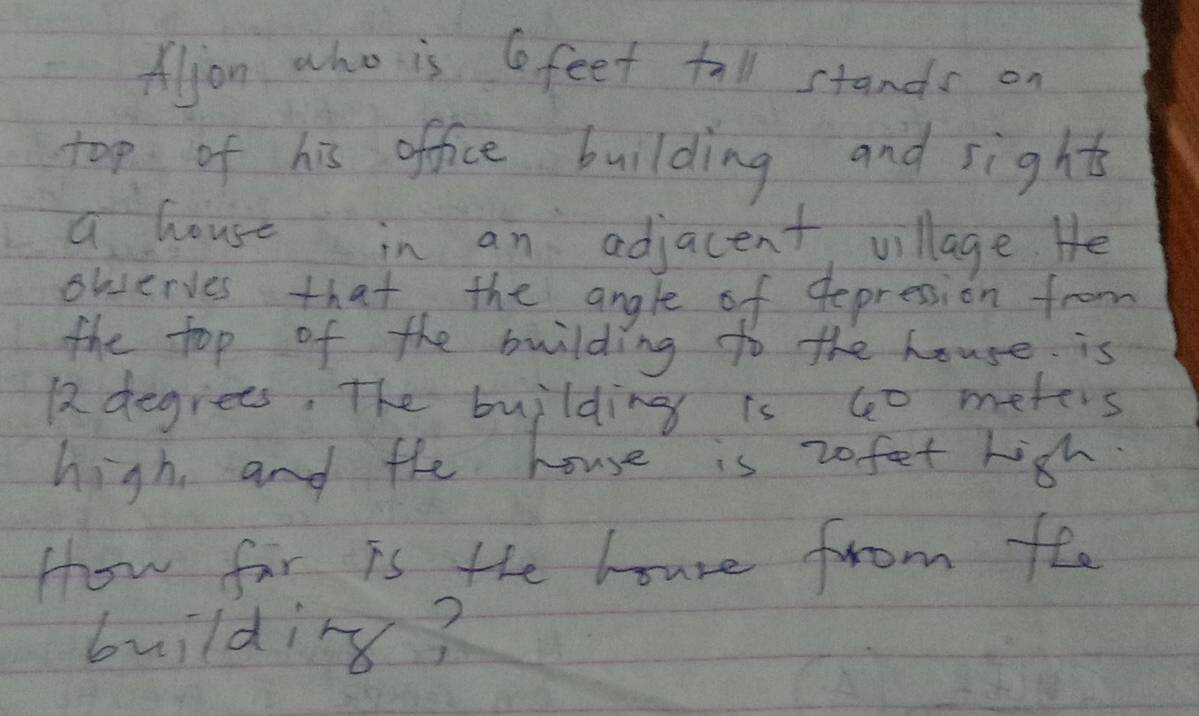 Aljon who is 6 feet tall stands on
top of his office building and sights
a house in an adjacent village. He
observes that the angle of depression from
the top of the building to the house. is
12 degrees. The building is 60 meters
high, and the house is 20 feet high.
How far is the house from the
building?